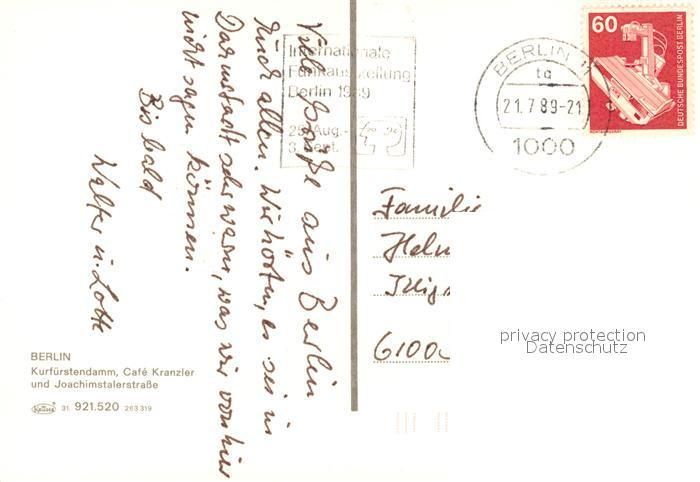 Viele Grüße aus Berlin
Euch allen. Wir hörten, es sei in
Darmstadt sehr warm, was wir von hier
nicht sagen können.
Bis bald
Walter u. Lotte
Internationale
Funkausstellung
Berlin 1989
25. Aug.-
3. Sept.
BERLIN 11
ta
21.7.89-21
1000
60
DEUTSCHE BUNDESPOST BERLIN
Familie
6100
privacy protection
Datenschutz
BERLIN
Kurfürstendamm, Café Kranzler
und Joachimstalerstraße
Krüger 31. 921.520 263319